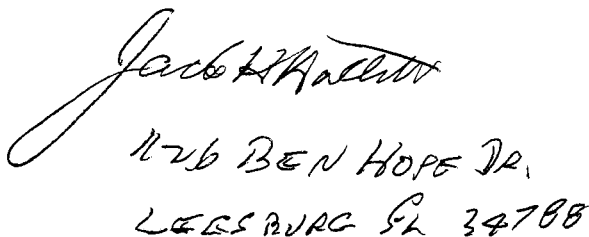 Jack H Hallett
1126 BEN HOPE DR.
LEESBURG FL 34788